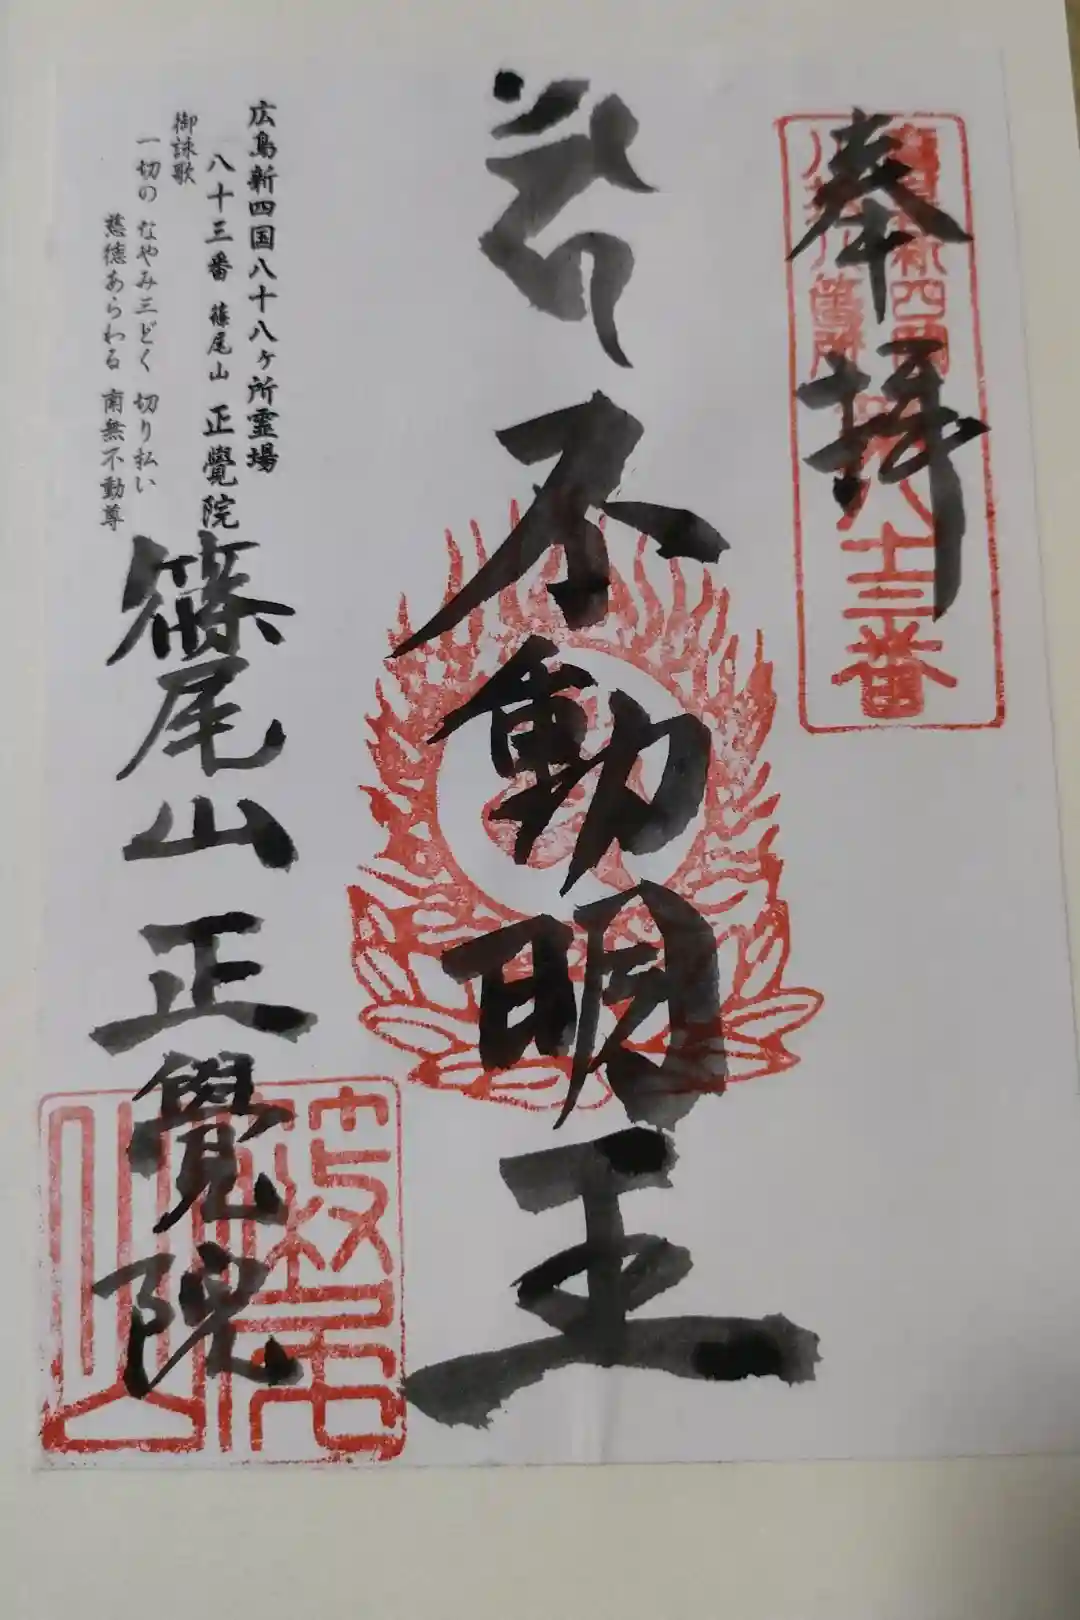 奉拝
四国
八十三番
不動明王
広島新四国八十八ヶ所霊場
八十三番 篠尾山 正覺院
御詠歌
一切の なやみ三どく 切り払い
慈徳あらわる 南無不動尊
篠尾山正覺院